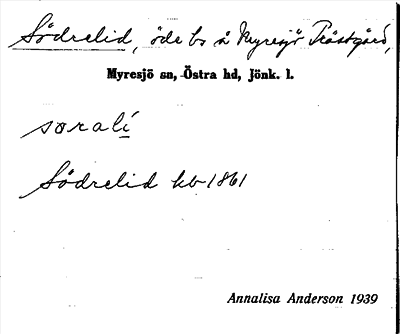 Södrelid, öde bs å Myresjö Prästgård,
Myresjö sn, Östra hd, Jönk. l.
sorali
Södrelid kb 1861
Annalisa Anderson 1939